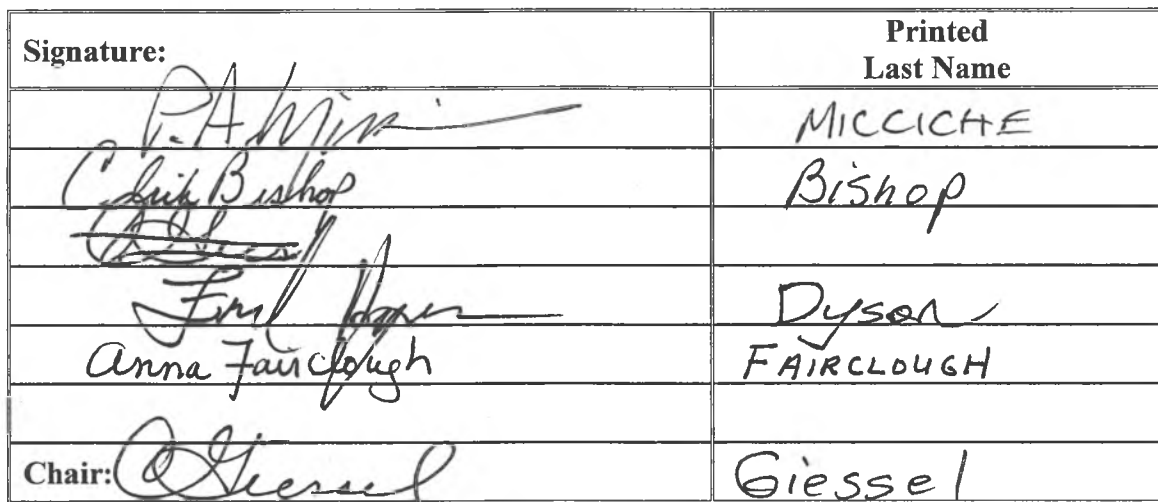 Signature: Printed
Last Name
P.A. MICCICHE
Click Bishop Bishop
Fred Dyson Dyson
Anna Fairclough FAIRCLOUGH
Chair: C Giessel Giessel